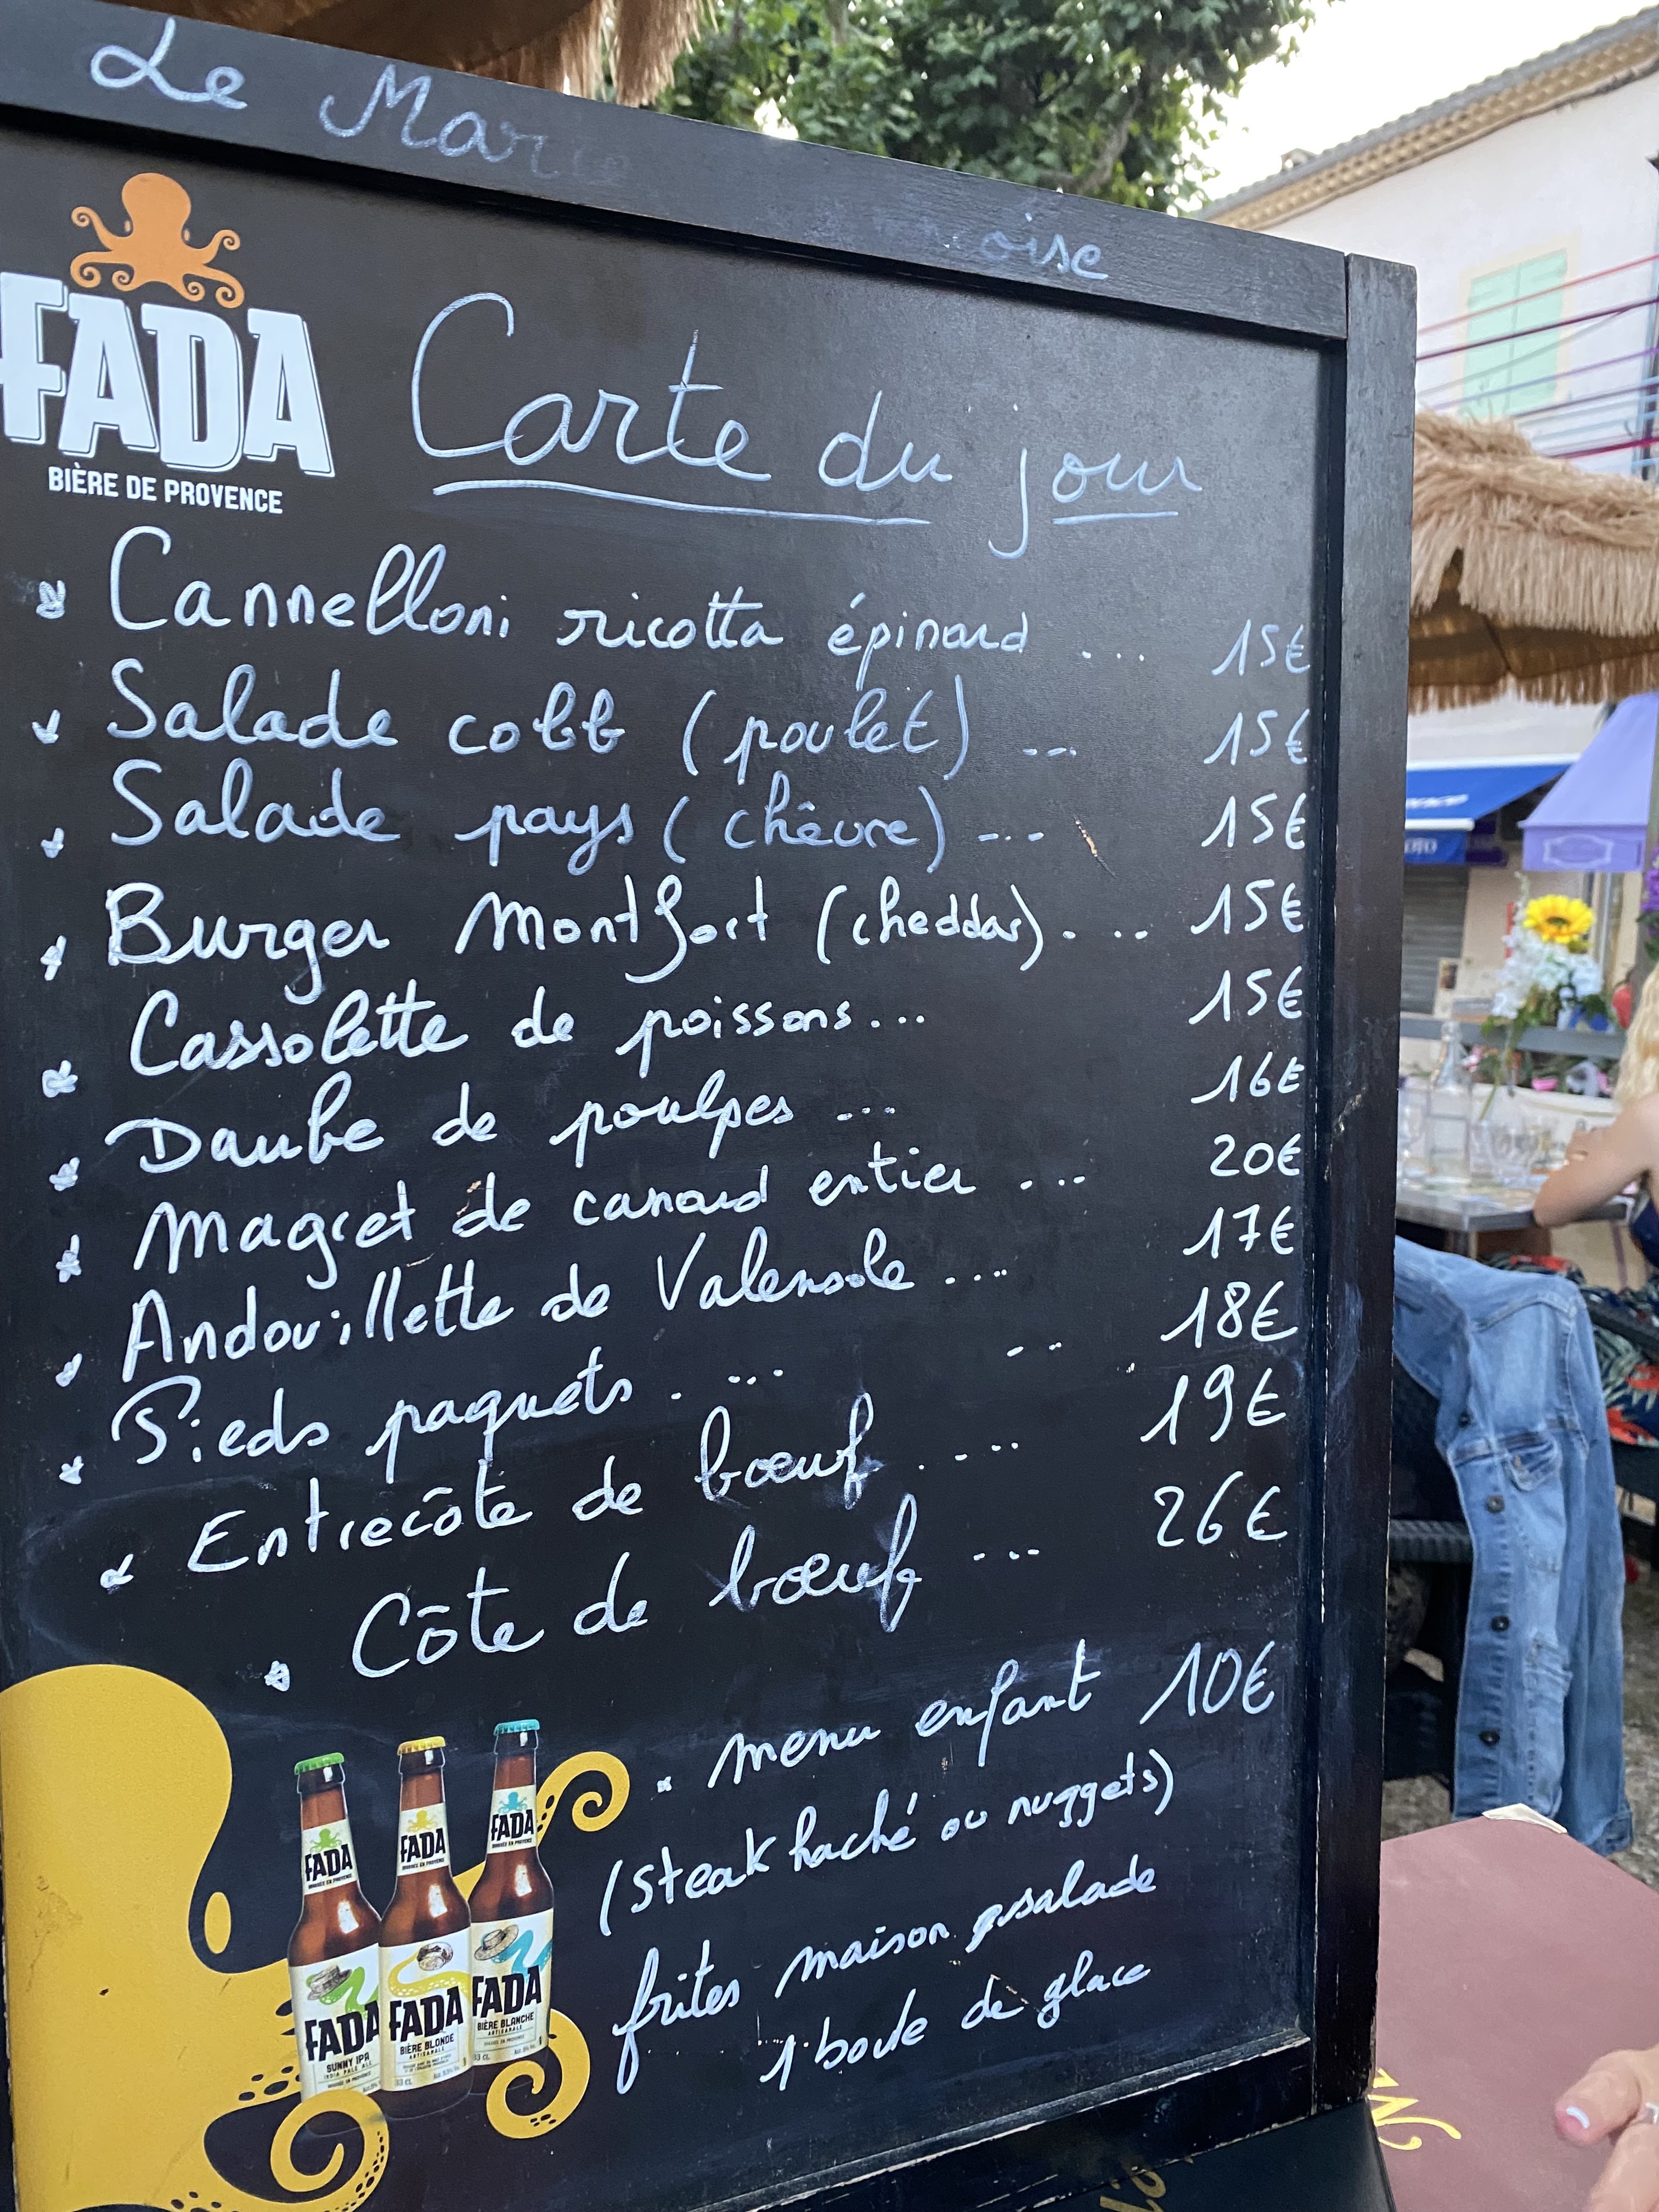 Le Mar
oise
FADA
BIÈRE DE PROVENCE
Carte du jour
Cannelloni ricotta épinard ... 15€
Salade cobb (poulet) ... 15€
Salade pays (chêvre) --- 15€
Burger Montfort (cheddar). .. 15€
Cassolette de poissons... 15€
Daube de poulpes ... 16€
Magret de canard entier ... 20€
Andouillette de Valensole ... 17€
Pieds paquets . ... .. 18€
Entrecôte de bœuf . ... 19€
Côte de bœuf ... 26€
menu enfant 10€
(steak haché ou nuggets)
frites maison salade
1 boule de glace
FADA
FADA
FADA
FADA
SUNNY IPA
INDIA PALE ALE
FADA
BIÈRE BLONDE
ARTISANALE
33 CL
FADA
BIÈRE BLANCHE
ARTISANALE
33 CL